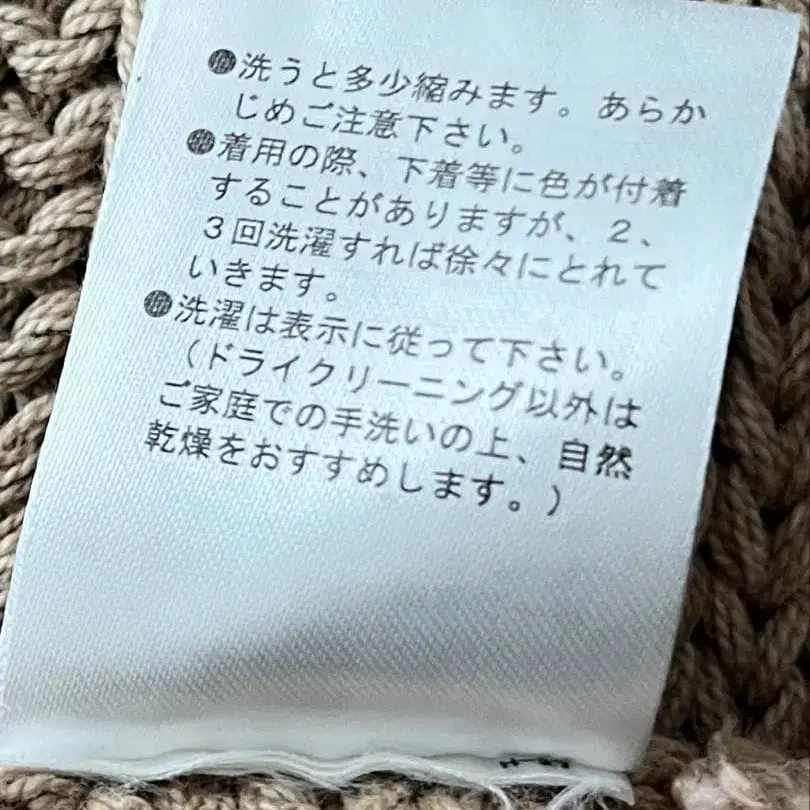 ●洗うと多少縮みます。あらか
じめご注意下さい。
●着用の際、下着等に色が付着
することがありますが、２、
３回洗濯すれば徐々にとれて
いきます。
●洗濯は表示に従って下さい。
（ドライクリーニング以外は
ご家庭での手洗いの上、自然
乾燥をおすすめします。）